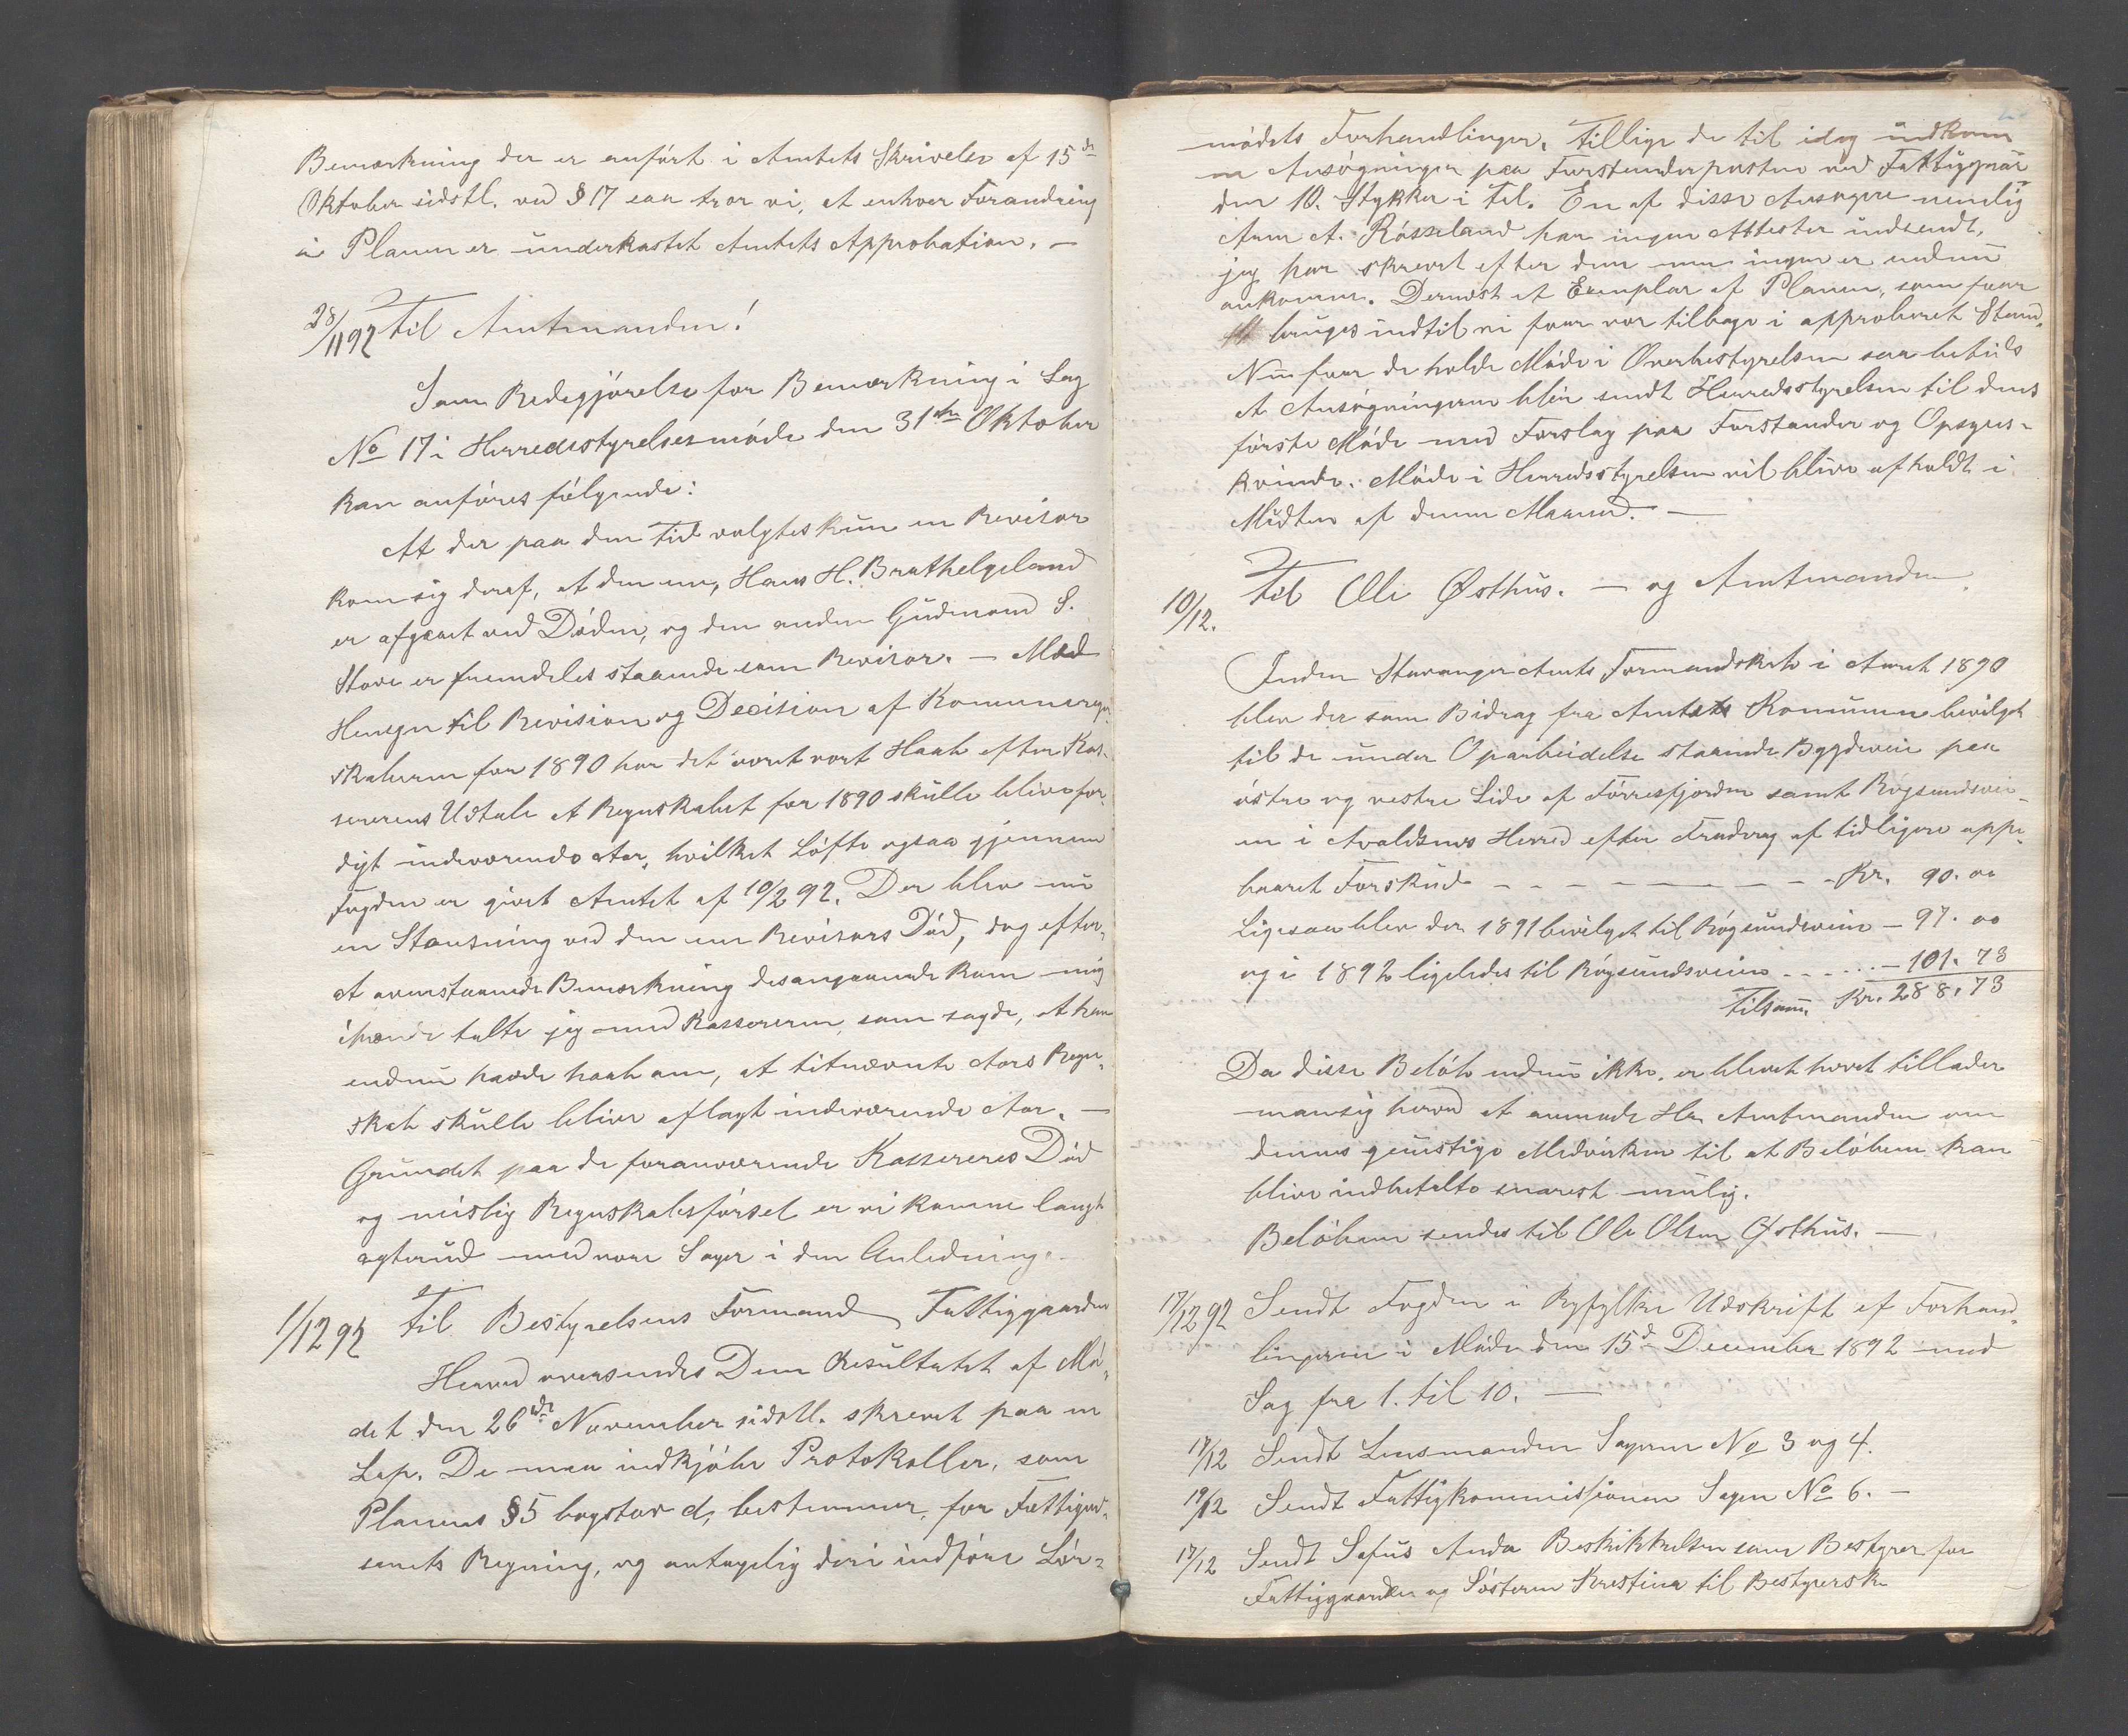 Bemærkning der er anført i Amtets Skrivelse af 15de
Oktober sidstl. ved § 17 saa tror vi, at enhver Forandring
i Planen er underkastet Amtets Approbation. —
28/11 92 Til Amtmanden!
Som Redegjørelse for Bemærkning i Sag
No 17 i Herredsstyrelsesmøde den 31te Oktober
kan anføres følgende:
At der paa den Tid valgtes kun en Revisor
kom sig deraf, at den ene, Hans H. Brathelgeland
er afgaaet ved Døden, og den anden Gudmand S.
Stove er fremdeles staaende som Revisor. — Med
Hensyn til Revision og Decision af Kommuneregn-
skaberne for 1890 har det været vort Haab efter Kas-
sererens Udtale at Regnskabet for 1890 skulle blive fær-
digt indeværende Aar, hvilket Løfte ogsaa gjennem
Fogden er givet Amtet af 10/2 92. Der blev nu
en Standsning ved den ene Revisors Død, dog efter-
at ovenstaaende Bemærkning desangaaende kom mig
ihænde talte jeg med Kassereren, som sagde, at han
endnu havde haab om, at titnævnte Aars Regn-
skab skulle blive aflagt indeværende Aar. —
Grundet paa de foranværende Kassereres Død
og mislig Regnskabsførsel er vi komne langt
agterud med vore Sager i den Anledning.
1/12 92 Til Bestyrelsens Formand Fattiggaarden
Herved oversendes Dem Resultatet af Mø-
det den 26de November sidstl. skrevet paa en
Lap. De maa indkjøbe Protokoller, som
Planens § 5 bogstav d, bestemmer, for Fattigvæ-
senets Regning, og antagelig deri indføre Lør-
mødets Forhandlinger. Tillige de til idag indkom
ne Ansøgninger paa Forstanderposten ved Fattiggaar
den 10. Stykker i Tal. En af disse Ansøgere nemlig
Aam A. Røsseland har ingen Attester indsendt,
jeg har skrevet efter dem men ingen er endnu
ankomne. Dernæst et Exemplar af Planen, som faar
bruges indtil vi faar vor tilbage i approberet Stand.
Nu faar de holde Møde i Overbestyrelsen saa betids
at Ansøgningerne blir sendt Herredsstyrelsen til dens
første Møde med Forslag paa Forstander og Opsyns-
kvinde. Møde i Herredsstyrelsen vil blive afholdt i
Midten af denne Maaned. —
10/12. Til Ole Østhus. — og Amtmanden
Inden Stavanger Amts Formandskab i Aaret 1890
blev der som Bidrag fra Amtets Kommune bevilget
til de under Oparbeidelse staaende Bygdeveie paa
østre og vestre Side af Førresfjorden samt Røgsundsvei-
en i Avaldsnes Herred efter Fradrag af tidligere oppe-
baaret Forskud — — — — — Kr. 90.00
Ligesaa blev der 1891 bevilget til Røgsundsveien — 97.00
og i 1892 ligeledes til Røgsundsveien . . . . . . — 101.73
Tilsam. Kr. 288,73
Da disse Beløb endnu ikke er blevet hævet tillader
man sig herved at anmode Hr. Amtmanden om
dennes gunstige Medvirken til at Beløbene kan
blive indbetalte snarest mulig.
Beløbene sendes til Ole Olsen Østhus. —
17/12 92 Sendt Fogden i Ryfylke Udskrift af Forhand-
lingerne i Møde den 15d December 1892 med
Sag fra 1. til 10. —
17/12 Sendt Lensmanden Sagerne No 3 og 4.
19/12 Sendt Fattigkommissionen Sagen No 6. —
17/12 Sendt Sefus Anda Beskikkelsen som Bestyrer for
Fattiggaarden og Søsteren Krestina til Bestyrerske